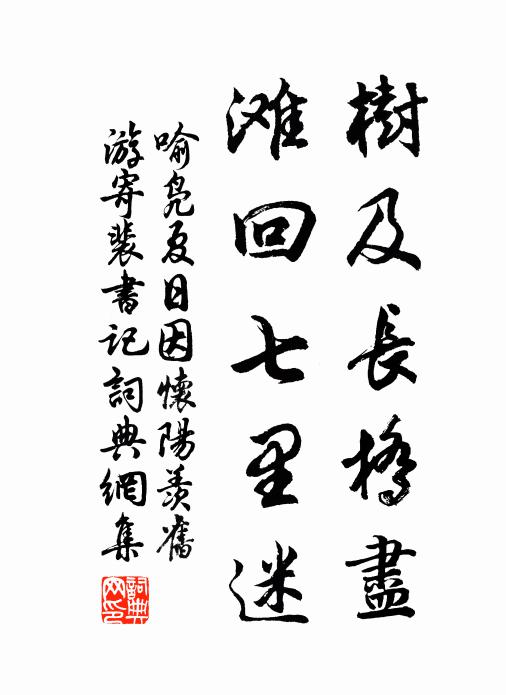 樹及長橋盡
滩回七里迷
喻凫夏日因懷陽羨舊
游寄裴書記詞典網集